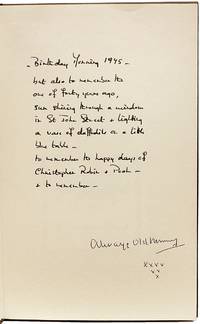 - Birthday Morning 1945 -
but also to remember the
one of forty years ago,
sun shining through a window
in St John Street & lighting
a vase of daffodils on a little
blue table -
to remember the happy days of
Christopher Robin & Pooh -
& to remember -
Always
xxxx
xx
x